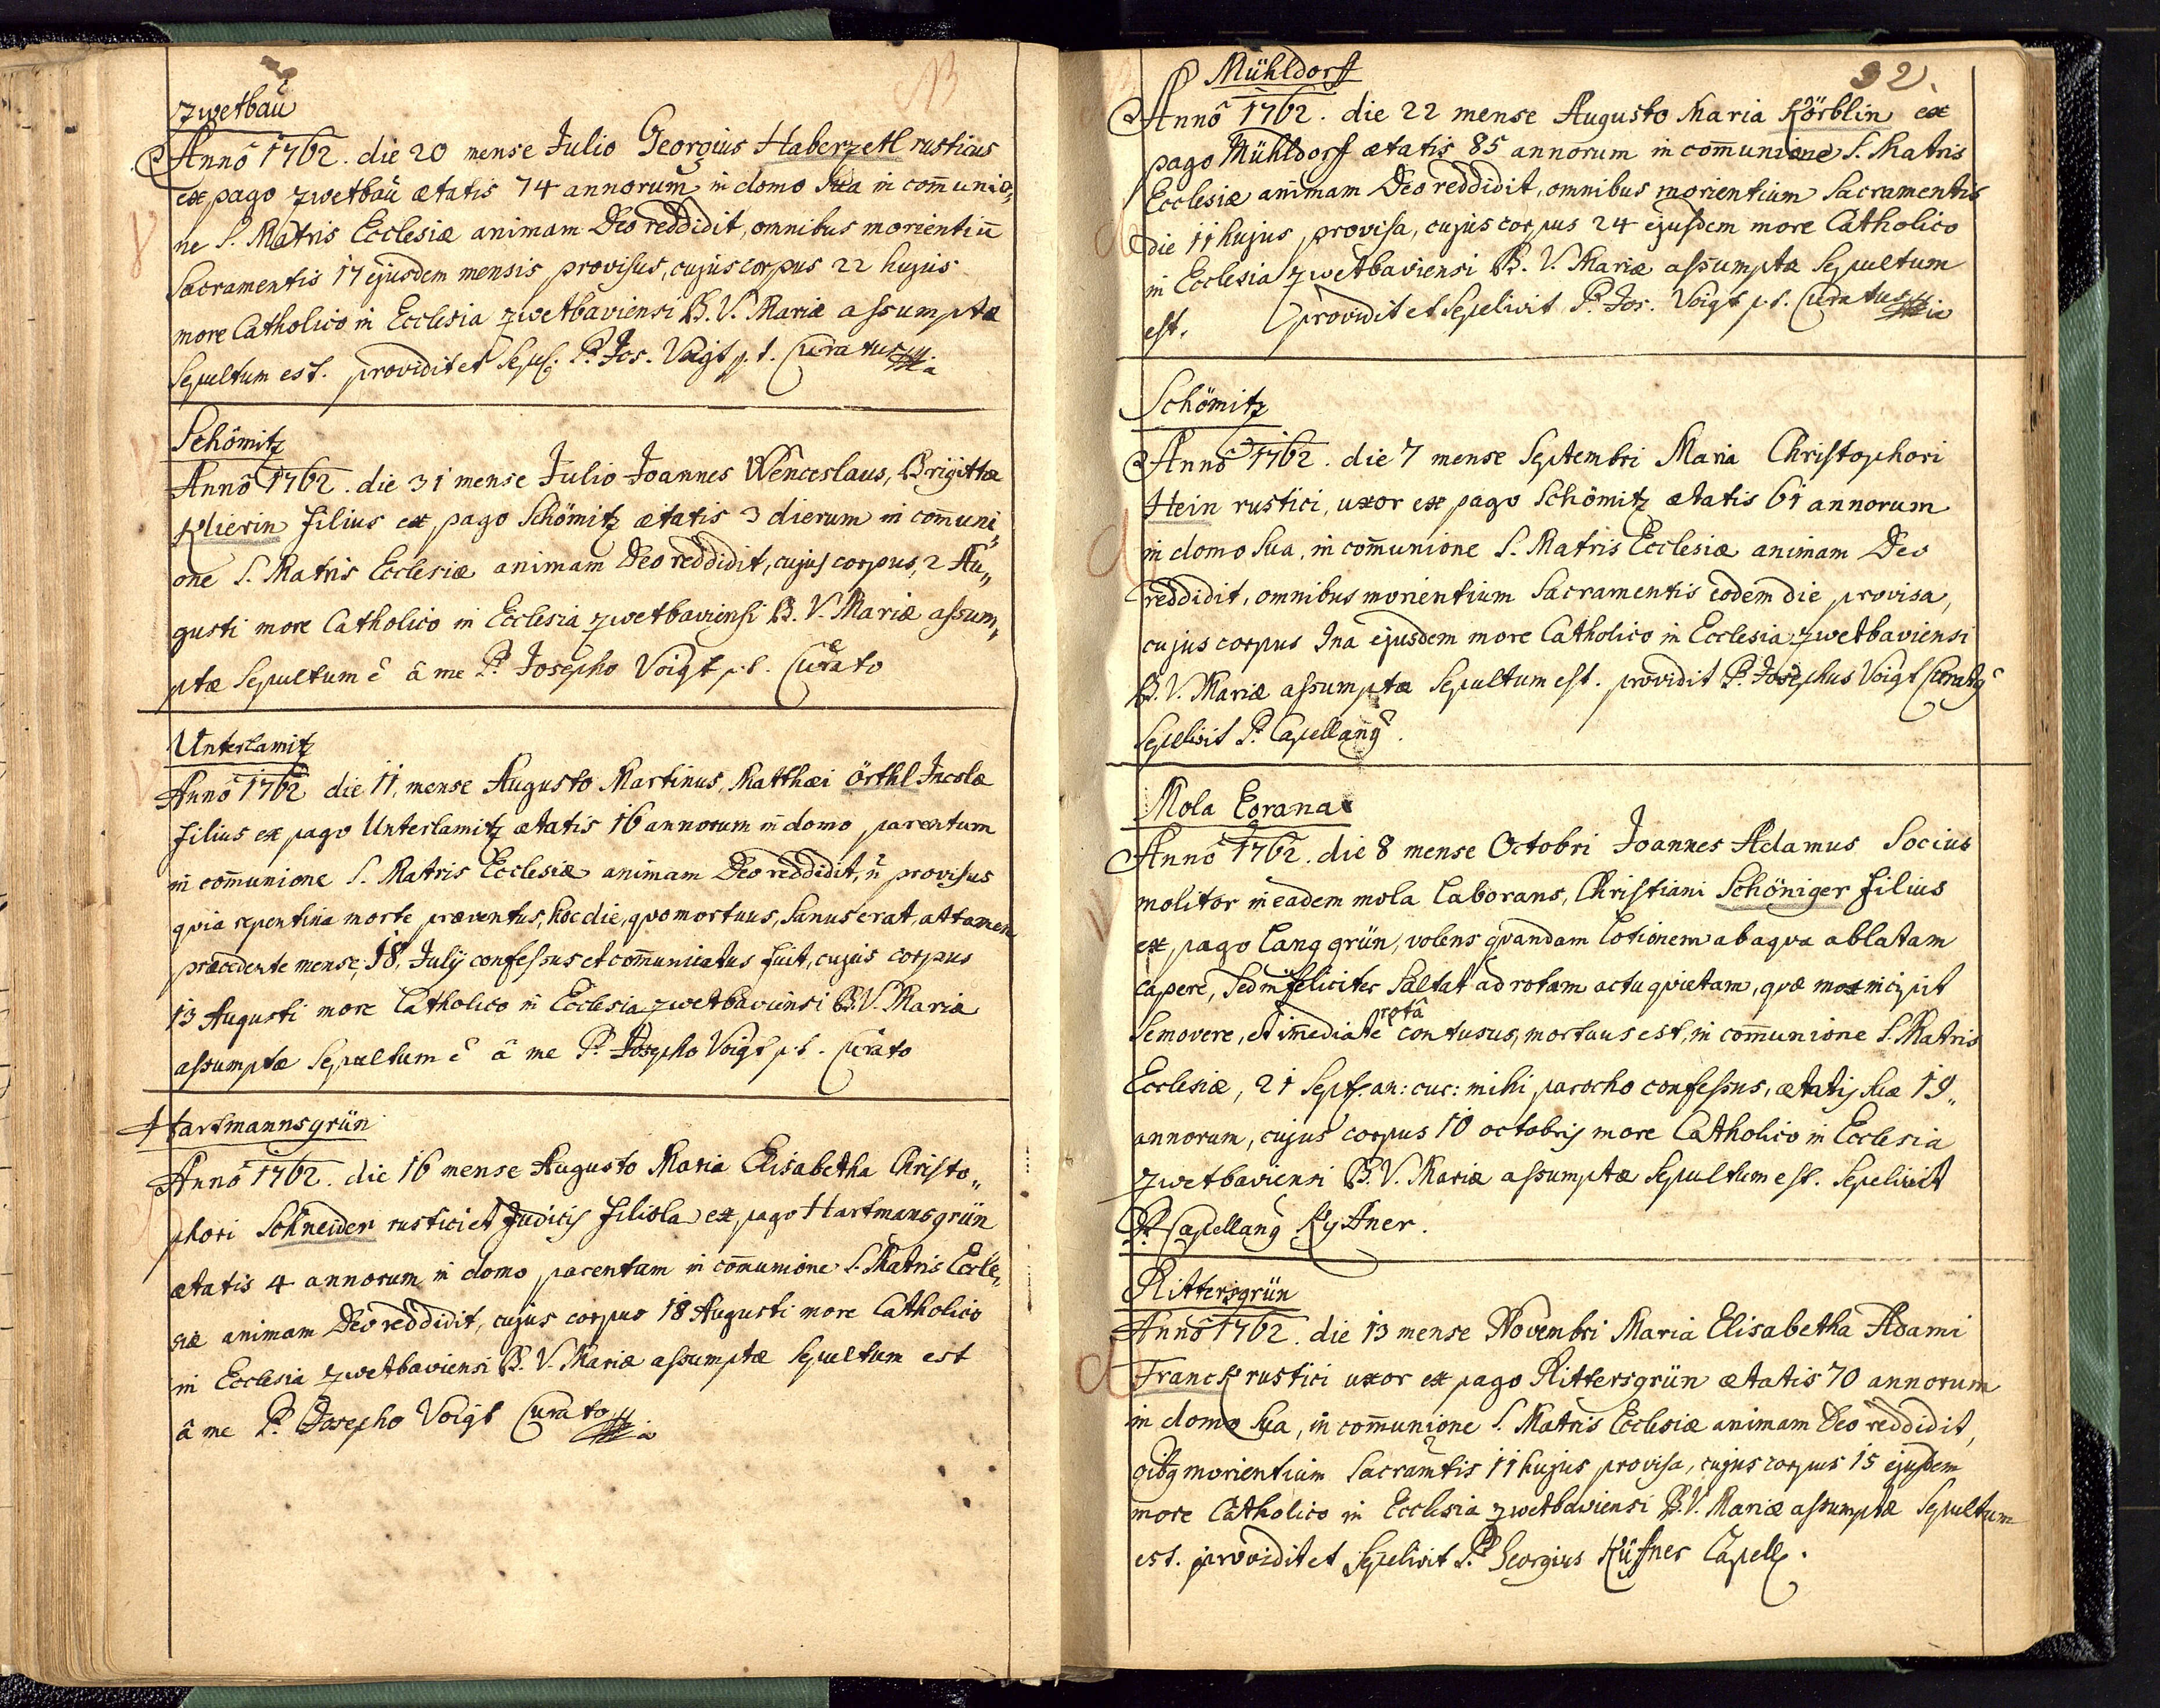 Zwetbau
Anno 1762. die 20 mense Julio Georgius Haberzetl rusticus
ex pago Zwetbau ætatis 74 annorum in domo sua in com̄unio„
ne S. Matris Ecclesiæ animam Deo reddidit, omnibus morientiū
Sacramentis 17 ejusdem mensis provisus, cujus corpus 22 hujus
more Catholico in Ecclesia Zwetbaviensi B. V. Mariæ assumptæ
Sepultum est. providit et Sepel: P. Jos. Voigt p. t. Curatus
Schömitz
Anno 1762. die 31 mense Julio Joannes Wenceslaus, Brigittæ
Klierin filius ex pago Schömitz ætatis 3 dierum in com̄uni„
one S. Matris Ecclesiæ animam Deo reddidit, cujus corpus, 2 Au„
gusti more Catholico in Ecclesia Zwetbaviensi B. V. Mariæ assum„
ptæ Sepultum ē â me P. Josepho Voigt p. t. Curato
Unterlamitz
Anno 1762 die 11. mense Augusto Martinus, Matthæi Örthl Incolæ
filius ex pago Unterlamitz ætatis 16 annorum in domo parentum
in com̄unione S. Matris Ecclesiæ animam Deo reddidit, ñ provisus
quia repentina morte præventus, hoc die, quo mortuus, sanus erat, attamen
præcedente mense, 18. Julij confessus et com̄unicatus fuit, cujus corpus
13 Augusti more Catholico in Ecclesia Zwetbaviensi B. V. Mariæ
assumptæ Sepultum ē â me P. Josepho Voigt p. t. Curato
Hartmannsgrün
Anno 1762. die 16 mense Augusto Maria Elisabetha Christo„
phori Schneider rustici et Judicis filiola ex pago Hartmansgrün
ætatis 4 annorum in domo parentum in com̄unione S. Matris Eccle„
siæ animam Deo reddidit, cujus corpus 18 Augusti more Catholico
in Ecclesia Zwetbaviensi B. V. Mariæ assumptæ Sepultum est
â me P. Josepho Voigt Curato
32.
Mühldorf
Anno 1762. die 22 mense Augusto Maria Körblin ex
pago Mühldorf ætatis 85 annorum in com̄unione S. Matris
Ecclesiæ animam Deo reddidit, omnibus morientium Sacramentis
die 11 hujus provisa, cujus corpus 24 ejusdem more Catholico
in Ecclesia Zwetbaviensi B. V. Mariæ assumptæ Sepultum
est. providit et Sepelivit P. Jos. Voigt p. t. Curatus
Schömitz
Anno 1762. die 7 mense Septembri Maria Christophori
Hein rustici, uxor ex pago Schömitz ætatis 61 annorum
in domo sua, in com̄unione S. Matris Ecclesiæ animam Deo
reddidit, omnibus morientium Sacramentis eodem die provisa,
cujus corpus ejusdem more Catholico in Ecclesia Zwetbaviensi
B. V. Mariæ assumptæ Sepultum est. providit P. Josephus Voigt Curatus
Sepelivit P. Capellanus.
Mola Eorana
Anno 1762. die 8 mense Octobri Joannes Adamus Socius
molitor in eadem mola laborans, Christiani Schöniger filius
ex pago langgrün, volens quandam lotionem ab aqua ablatam
capere, sed infeliciter saltat ad rotam actu quietam, quæ mox incipit
se movere, et im̄ediate rotâ contusus, mortuus est, in com̄unione S. Matris
Ecclesiæ, 21 Sept. an: cur: mihi parocho confessus, ætatis suæ 19„
annorum, cujus corpus 10 octobris more Catholico in Ecclesia
Zwetbaviensi B. V. Mariæ assumptæ Sepultum est. Sepelivit
P. Capellanus Kyttner.
Rittersgrün
Anno 1762. die 13 mense Novembri Maria Elisabetha Adami
Franck rustici uxor ex pago Rittersgrün ætatis 70 annorum
in domo sua, in com̄unione S. Matris Ecclesiæ animam Deo reddidit,
oibq morientium Sacramtis 11 hujus provisa, cujus corpus 15 ejusdem
more Catholico in Ecclesia Zwetbaviensi B. V. Mariæ assumptæ Sepultum
est. providit et Sepelivit P. Georgius Küttner Capell.